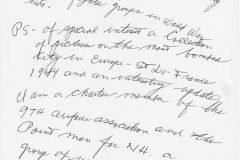 groups in World War
PS- of special interest a Collection
of pictures on the most bombed
City in Europe - St Lo - France
1944 and an interesting update
I am a charter member of the
9TH airforce association and the
Point man for N.H. a
group of